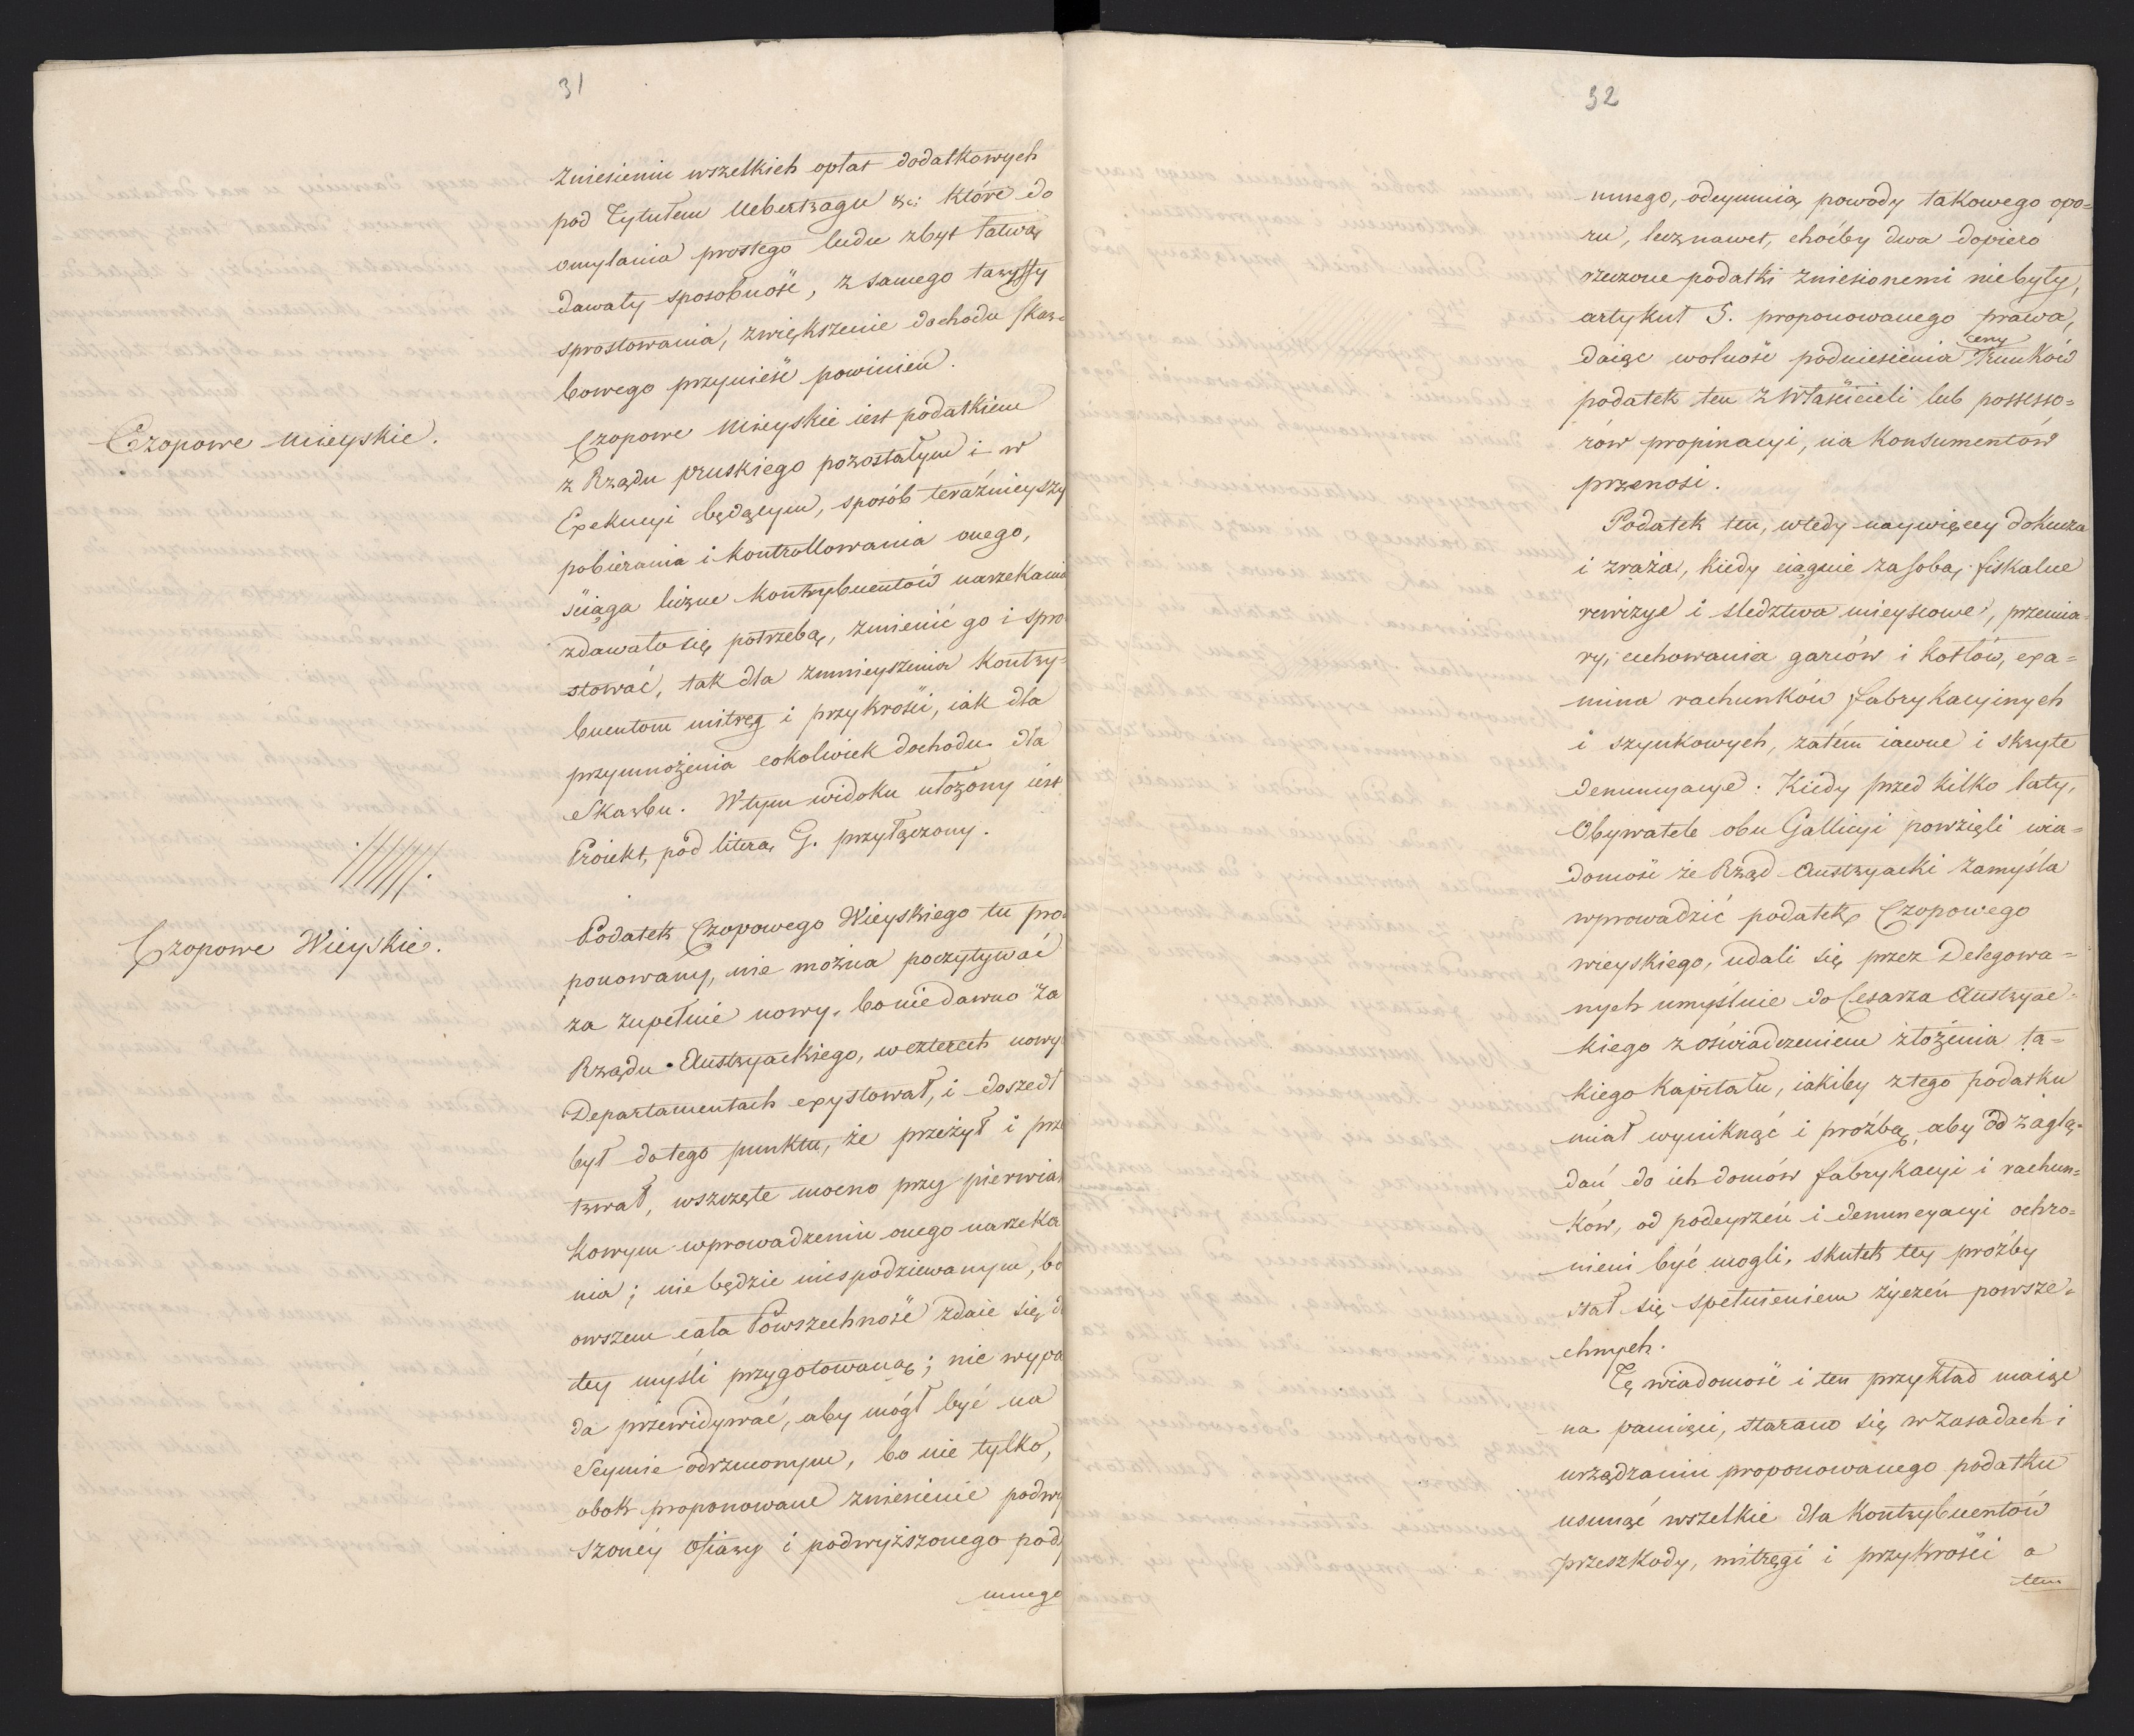 31
zniesieniu wszelkich opłat dodatkowych
pod Tytułem Uebertragu &c: które do
omylania prostego ludu zbyt łatwą
dawały sposobność, z samego taryffy
sprostowania, zwiększenie dochodu skar=
bowego przynieść powinien.
Czopowe Mieyskie.
Czopowe Mieyskie iest podatkiem
z Rządu pruskiego pozostałym i w
Exekucyi będącym, sposób teraźnieyszy
pobierania i kontrollowania onego,
ściąga liczne kontrybuentów narzekania
zdawało się potrzebą, zmienić go i spro
stować, tak dla zmnieyszenia kontry=
buentom mitręg i przykrości, iak dla
przymnożenia cokolwiek dochodu dla
Skarbu. W tym widoku ułożony iest
Proiekt, pod literą G. przyłączony.
Czopowe Wieyskie.
Podatek Czopowego Wieyskiego tu pro
ponowany, nie można poczytywać
za zupełnie nowy, bo niedawno za
Rządu Austryackiego, w czterech nowy
Departamentach exystował, i doszedł
był do tego punktu, że przeżył i prze
trwał, wszczęte mocno przy pierwiast
kowym wprowadzeniu onego narzeka
nia; nie będzie niespodziewanym, bo
owszem cała Powszechność zdaie się do
tey myśli przygotowaną; nie wypa
da przewidywać, aby mógł być na
Seymie odrzuconym, bo nie tylko,
obok proponowane zniesienie podwy
szoney Ofiary i podwyższonego pody
mnego
32
mnego, odeymuią powody takowego opo=
ru, lecz nawet, choćby dwa dopiero
rzeczone podatki zniesionemi niebyły,
artykuł 5. proponowanego prawa,
daiąc wolność podniesienia ceny Trunków
podatek ten z właścicieli lub possesso=
rów propinacyi, na Konsumentów
przenosi.
Podatek ten, wtedy naywięcey dokucza
i zraża, kiedy ciągnie za sobą fiskalne
rewizye i śledztwa mieyscowe, przemia
ry, cechowania garców i kotłów, exa=
mina rachunków fabrykacyinych
i szynkowych, zatém iawne i skryte
denuncyacye. Kiedy przed kilko laty,
Obywatele obu Gallicyi powzięli wia=
domość że Rząd Austryacki zamyśla
wprowadzić podatek Czopowego
wieyskiego, udali się przez Delegowa=
nych umyślnie do Cesarza Austryac=
kiego z oświadczeniem złożenia ta=
kiego Kapitału, iakiby z tego podatku
miał wyniknąć i proźbą, aby od zaglą=
dań do ich domów fabrykacyi i rachun=
ków, od podeyrzeń i denuncyacyi ochro=
nieni być mogli, skutek tey proźby
stał się spełnieniem życzeń powsze=
chnych.
Tę wiadomość i ten przykład maiąc
na pamięci, starano się w zasadach i
urządzaniu proponowanego podatku
usunąć wszelkie dla Kontrybuentów
przeszkody, mitręgi i przykrości a
tem